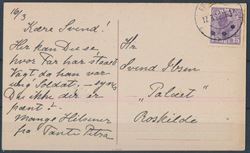 16/3
Kære Svend!
Her kan Du se,
hvor Far har staaet
Vagt da han var
Soldat. – synes
Du ikke der er
pænt? –
Mange Hilsener
fra Tante Petra
Hr
Svend Ibsen
"Palæet"
Roskilde